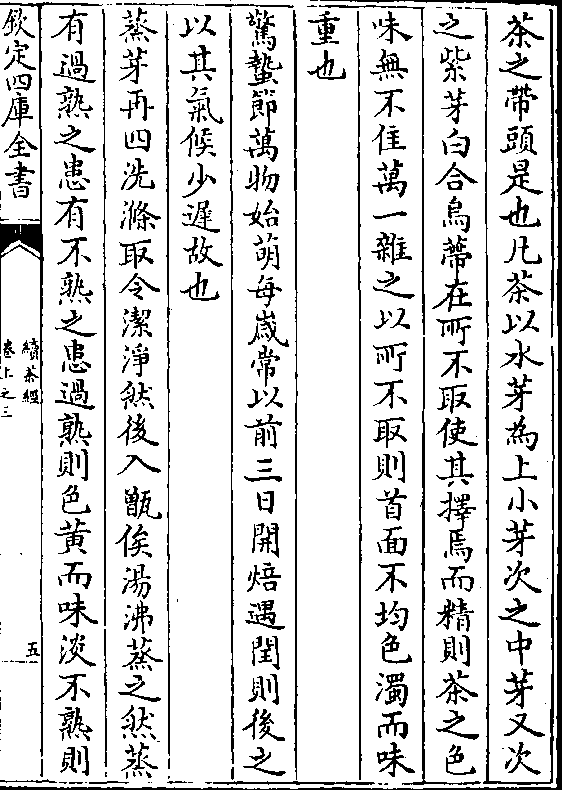 茶之帶頭是也凡茶以水芽為上小芽次之中芽又次
之紫芽白合烏蔕在所不取使其擇焉而精則茶之色
味無不佳萬一雜之以所不取則首面不均色濁而味
重也
驚蟄節萬物始萌每歲常以前三日開焙遇閏則後之
以其氣候少遲故也
蒸芽再四洗滌取令潔淨然後入甑俟湯沸蒸之然蒸
有過熟之患有不熟之患過熟則色黄而味淡不熟則
欽定四庫全書
續茶經
卷上之三
五